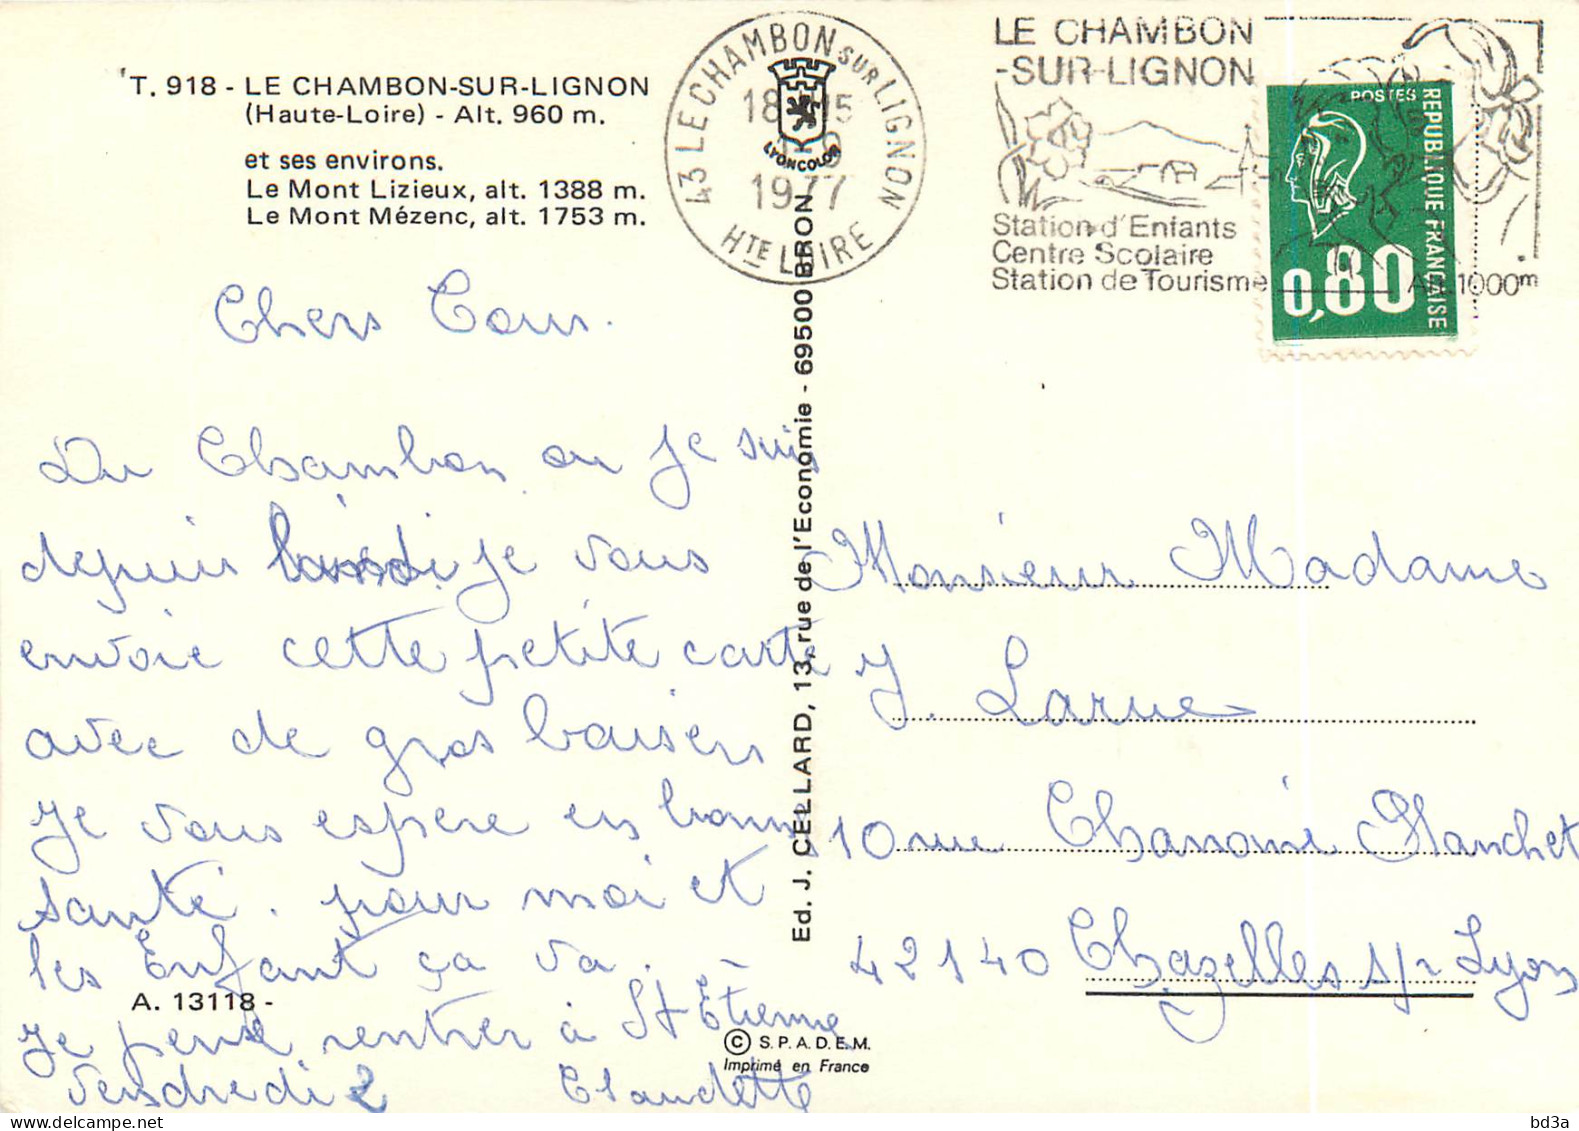 T. 918 - LE CHAMBON-SUR-LIGNON
(Haute-Loire) - Alt. 960 m.
et ses environs.
Le Mont Lizieux, alt. 1388 m.
Le Mont Mézenc, alt. 1753 m.
43 LE CHAMBON SUR LIGNON
1977
HTE LOIRE
LYONCOLOR
LE CHAMBON
-SUR-LIGNON
Station d'Enfants
Centre Scolaire
Station de Tourisme
Alt. 1000m
POSTES
REPUBLIQUE FRANÇAISE
0,80
Chers Tous.
Du Chambon ou je suis
depuis lundi je vous
envoie cette petite carte
avec de gros baisers
Je vous espere en bonne
santé. pour moi et
les Enfant ça va.
Je pense rentrer à St Étienne
Vendredi 2
Claudette
A. 13118 -
Ed. J. CELLARD, 13, rue de l'Economie - 69500 BRON
Monsieur Madame
J. Larue
10 rue Chanoine Planchet
42140 Chazelles s/r Lyon
© S.P.A.D.E.M.
Imprimé en France
bd3a